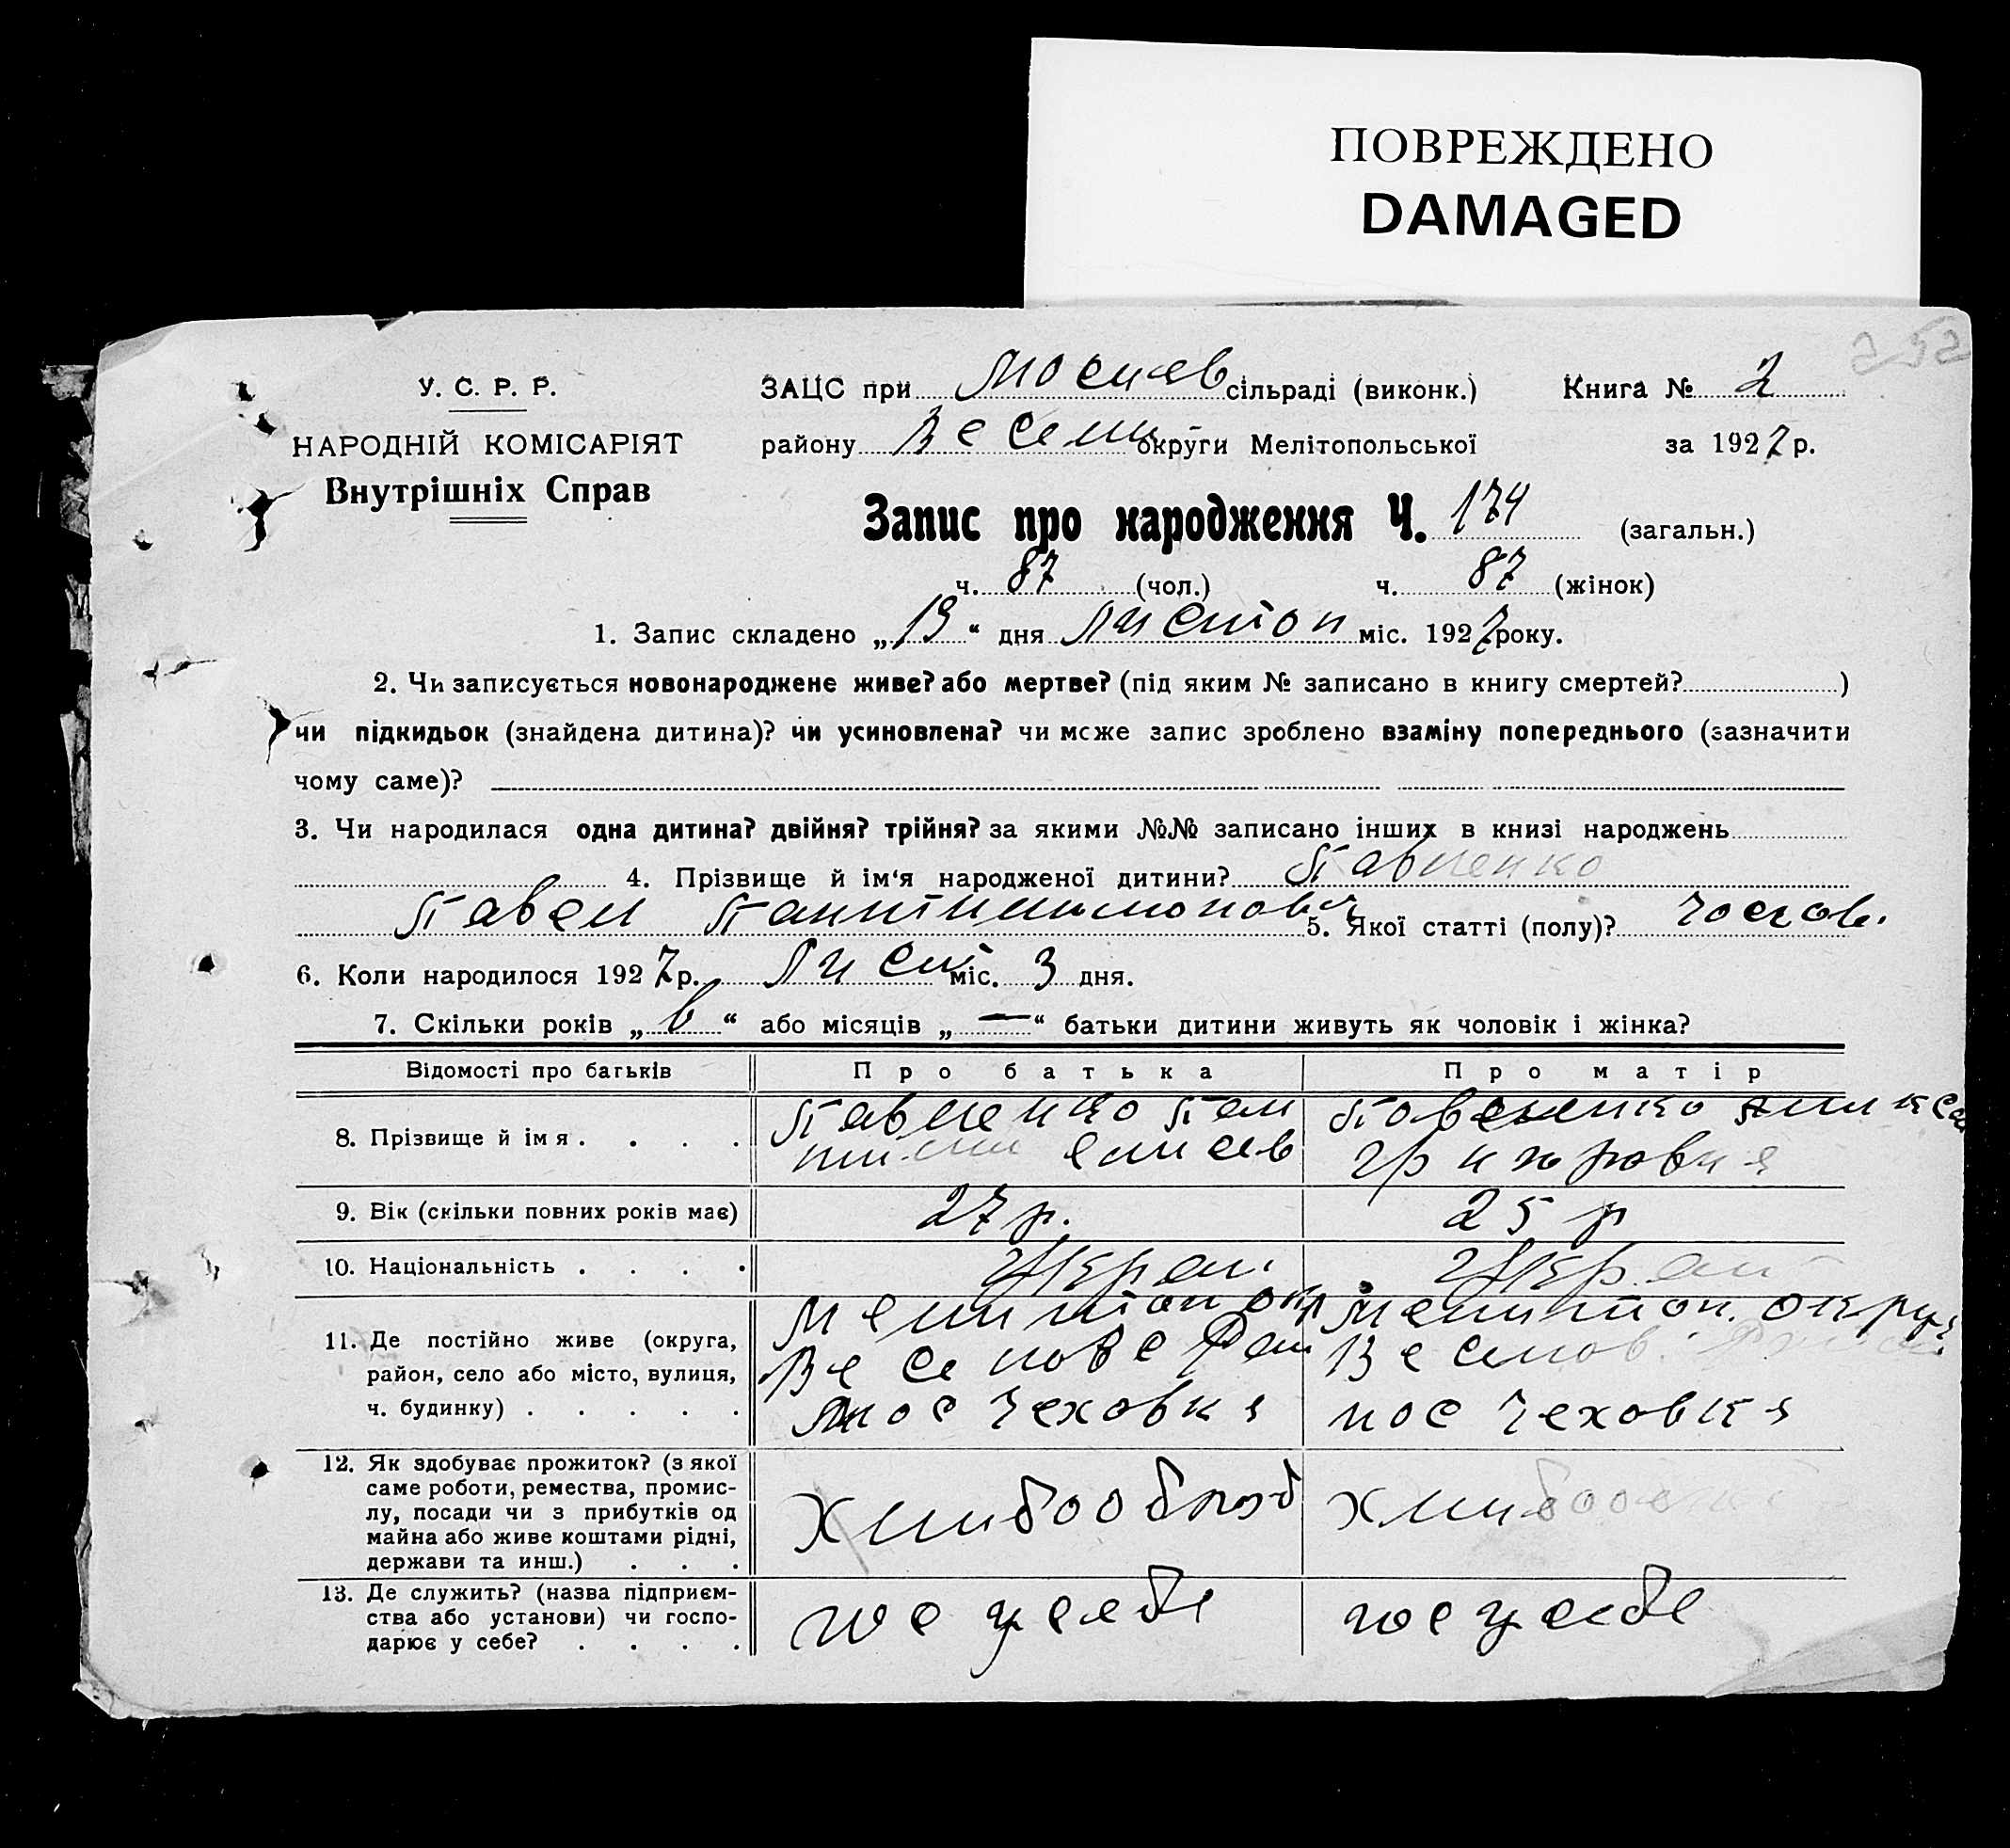 ПОВРЕЖДЕНО
DAMAGED
252
У. С. Р. Р.
НАРОДНІЙ КОМІСАРІЯТ
Внутрішніх Справ
ЗАЦС при сільраді (виконк.) Книга № 2
району Весели округи Мелітопольської за 1927 р.
Запис про народження Ч. 174 (загальн.)
ч. 87 (чол.) ч. 87 (жінок)
1. Запис складено „13“ дня Листоп міс. 1927 року.
2. Чи записується новонароджене живе? або мертве? (під яким № записано в книгу смертей? )
чи підкидьок (знайдена дитина)? чи усиновлена? чи може запис зроблено взаміну попереднього (зазначити
чому саме)?
3. Чи народилася одна дитина? двійня? трійня? за якими №№ записано інших в книзі народжень
4. Прізвище й ім‘я народженої дитини? Павленко
Павел 5. Якої статті (полу)? чолов.
6. Коли народилося 1927 р. Лист міс. 3 дня.
7. Скільки років „6“ або місяців „—“ батьки дитини живуть як чоловік і жінка?
Відомості про батьків Про батька Про матір
8. Прізвище й імя . . . . Павленко Пан Павленко
9. Вік (скільки повних років має) 27 р. 25 р
10. Національність . . . . Украї. Украї
11. Де постійно живе (округа, Мелітоп окр Мелітоп. округ
район, село або місто, вулиця, Веселовс Рай Веселов. Рай
ч. будинку) . . . . . пос Чеховка пос Чеховка
12. Як здобуває прожиток? (з якої
саме роботи, ремества, промис-
лу, посади чи з прибутків од
майна або живе коштами рідні,
держави та инш.) . . . Хлибооброб Хлибооб
13. Де служить? (назва підприєм-
ства або установи) чи госпо-
дарює у себе? . . . . гос у себе гос у себе